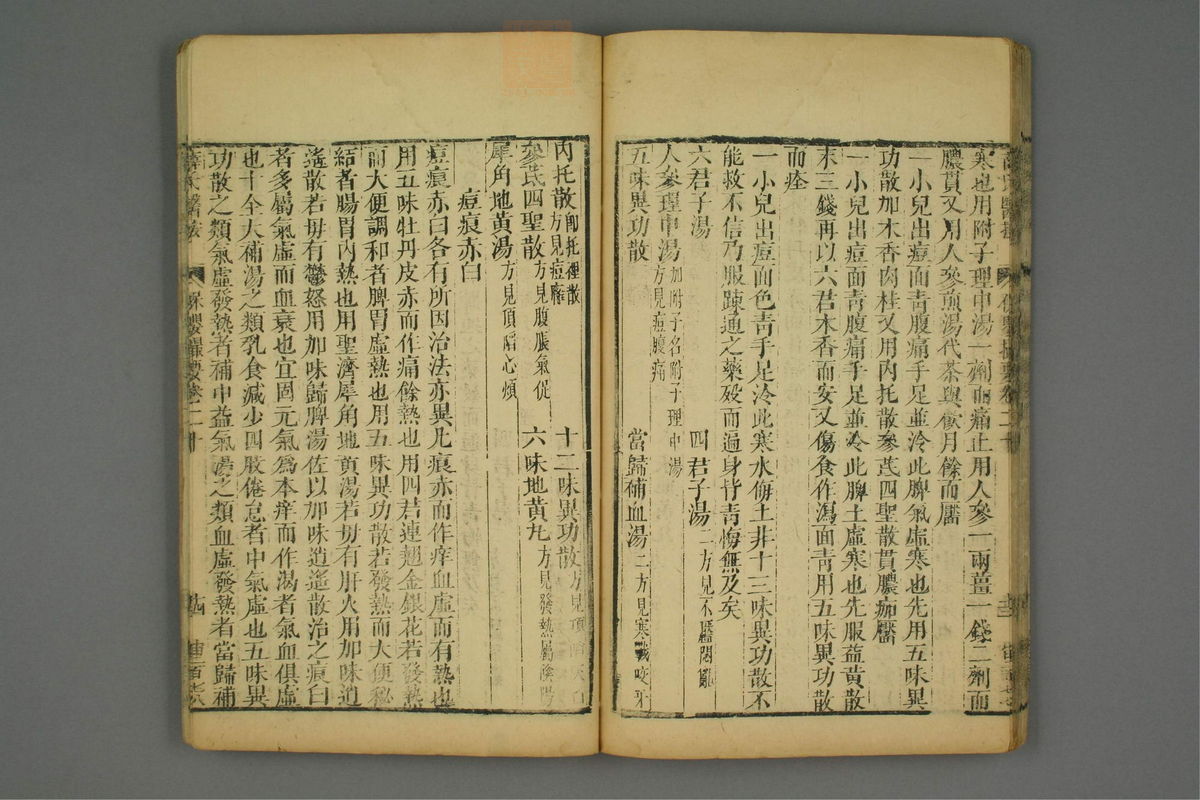 寒也用附子理中湯一劑而痛止用人參一兩薑一錢二劑而
膿貫又用人參煎湯代茶與飲月餘而靨
一小兒出痘面青腹痛手足並冷此脾氣虛寒也先用五味異
功散加木香肉桂又用內托散參芪四聖散貫膿茄靨
一小兒出痘面青腹痛手足並冷此脾土虛寒也先服益黃散
末三錢再以六君木香而安又傷食作瀉面青用五味異功散
而痊
一小兒出痘面色青手足冷此寒水侮土非十三味異功散不
能救不信乃服踈通之藥歿而遍身皆青悔無及矣
六君子湯　四君子湯二方見不靨悶亂
人參理中湯加附子名附子理中湯方見痘腹痛
五味異功散　當歸補血湯二方見寒戰咬牙
內托散即托裡散方見痘癰　十二味異功散方見頂陷灰白
參芪四聖散方見腹脹氣促　六味地黃丸方見發熱屬陰陽
犀角地黃湯方見頂陷心煩
痘痕赤白
痘痕赤白各有所因治法亦異凡痕赤而作痒血虛而有熱也
用五味牡丹皮赤而作痛餘熱也用四君連翹金銀花若發熱
而大便調和者脾胃虛熱也用五味異功散若發熱而大便秘
結者腸胃內熱也用聖濟犀角地黃湯若毋有肝火用加味逍
遙散若毋有鬱怒用加味歸脾湯佐以加味逍遙散治之痕白
者多屬氣虛而血衰也宜固元氣爲本痒而作渴者氣血俱虛
也十全大補湯之類乳食減少四肢倦怠者中氣虛也五味異
功散之類氣虛發熱者補中益氣湯之類血虛發熱者當歸補
薛氏醫按　保嬰撮要卷二十